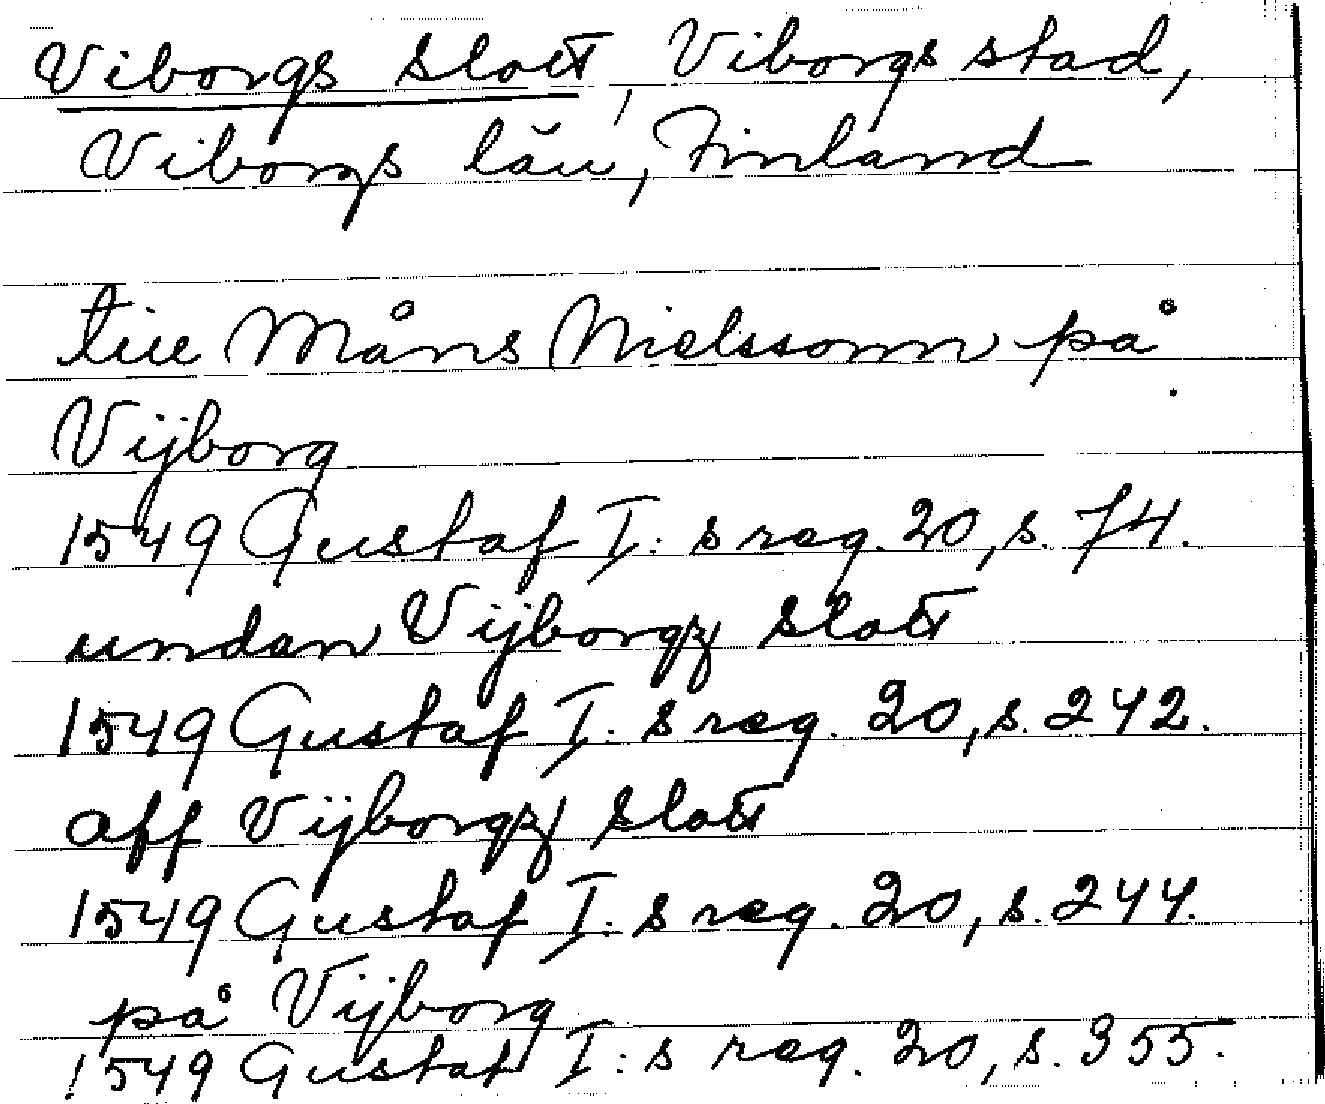 Viborgs slott, Viborgs stad,
Viborgs län, Finland
till Måns Nielssonn på
Vijborg
1549 Gustaf I:s reg. 20, s. 74.
undan Vijborgz slott
1549 Gustaf I:s reg. 20, s. 242.
aff Vijborgz slott
1549 Gustaf I:s reg. 20, s. 244.
på Vijborg
1549 Gustaf I:s reg. 20, s. 355.